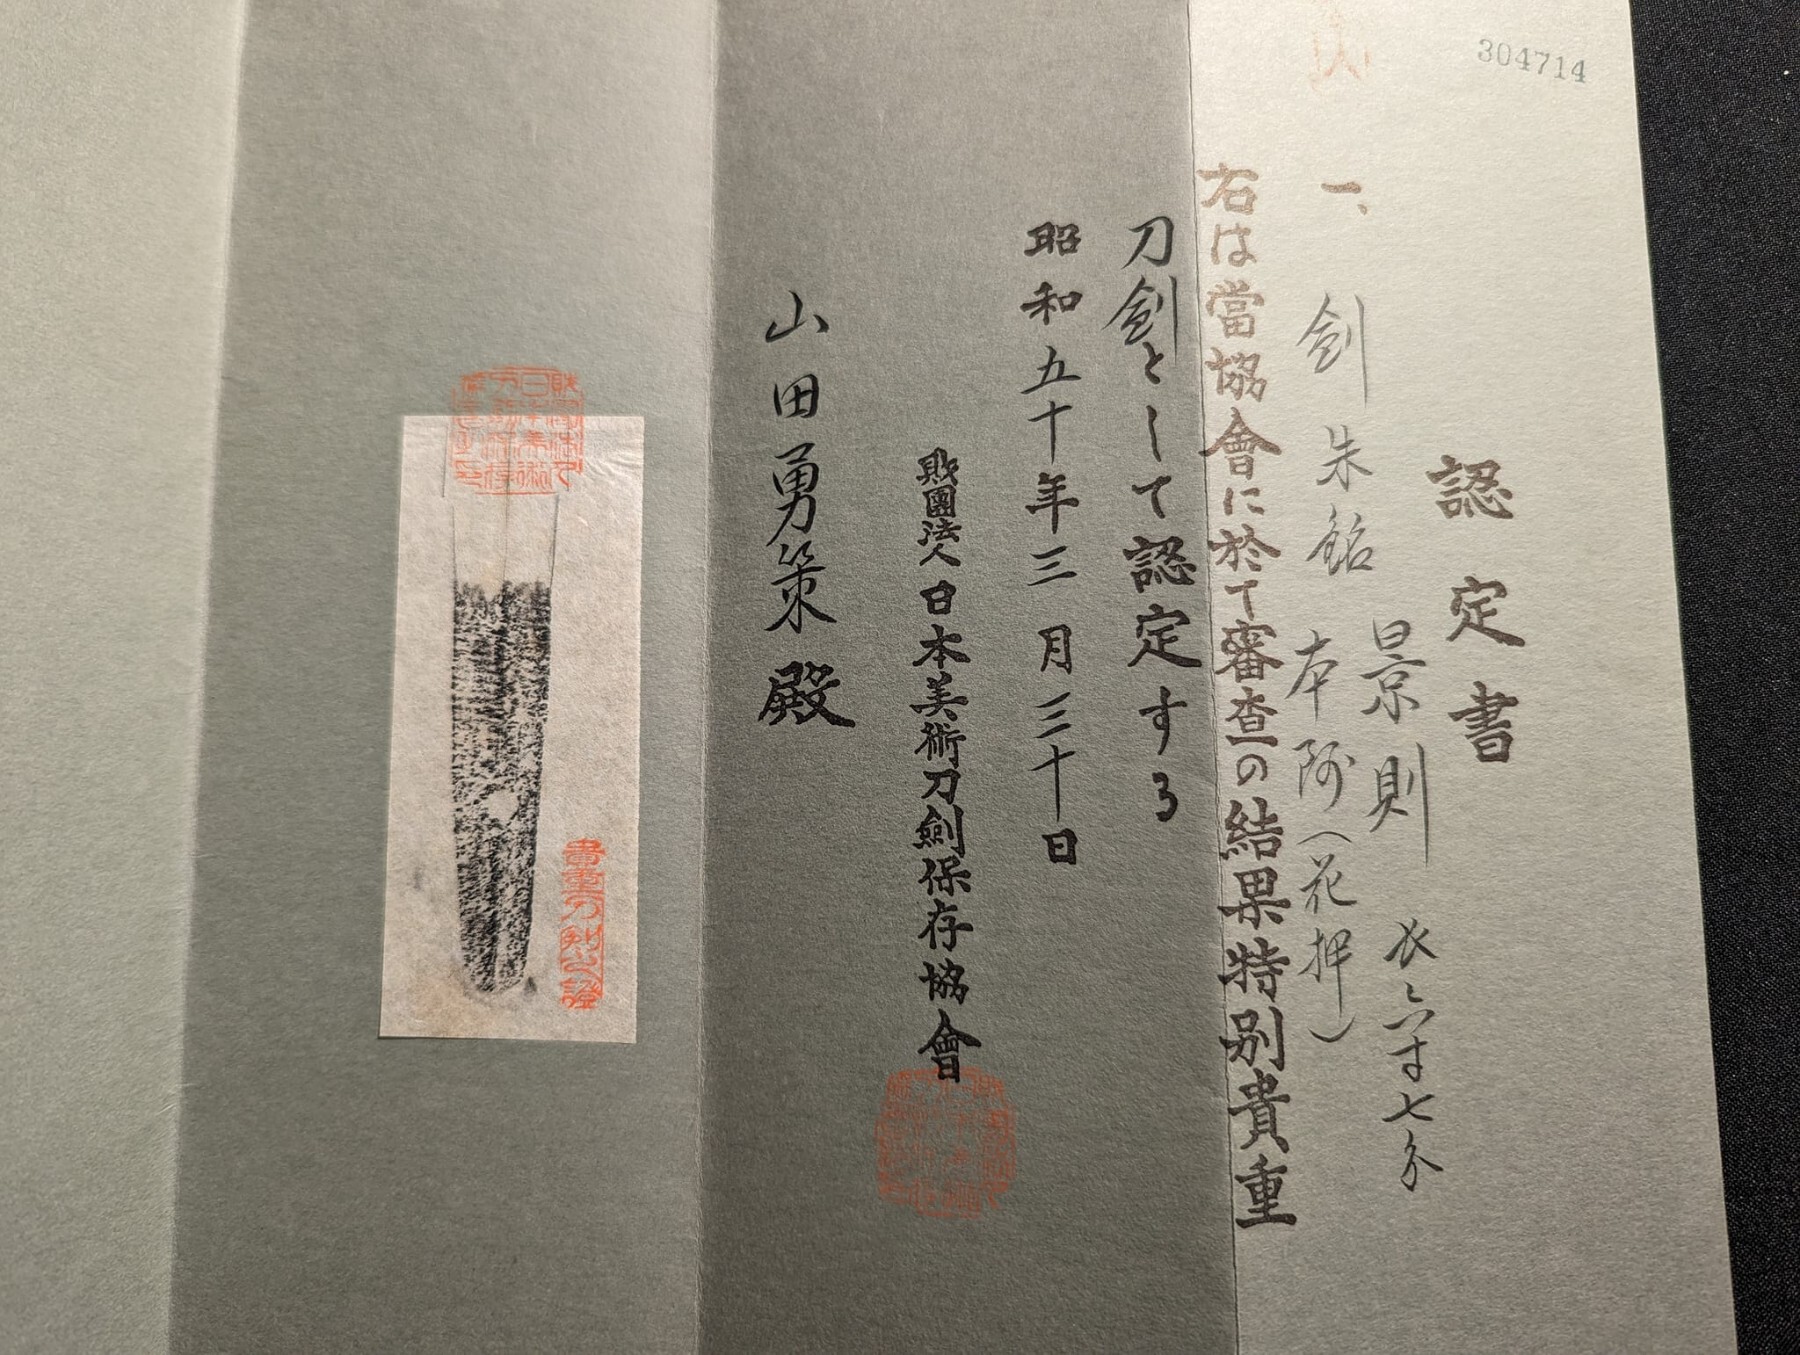 304714
認定書
一、剣 朱銘 景則 長六寸七分
本阿(花押)
右は當協會に於て審査の結果特別貴重
刀剣として認定する
昭和五十年三月三十日
財團法人 日本美術刀劍保存協會
山田勇策殿
貴重刀剣之證